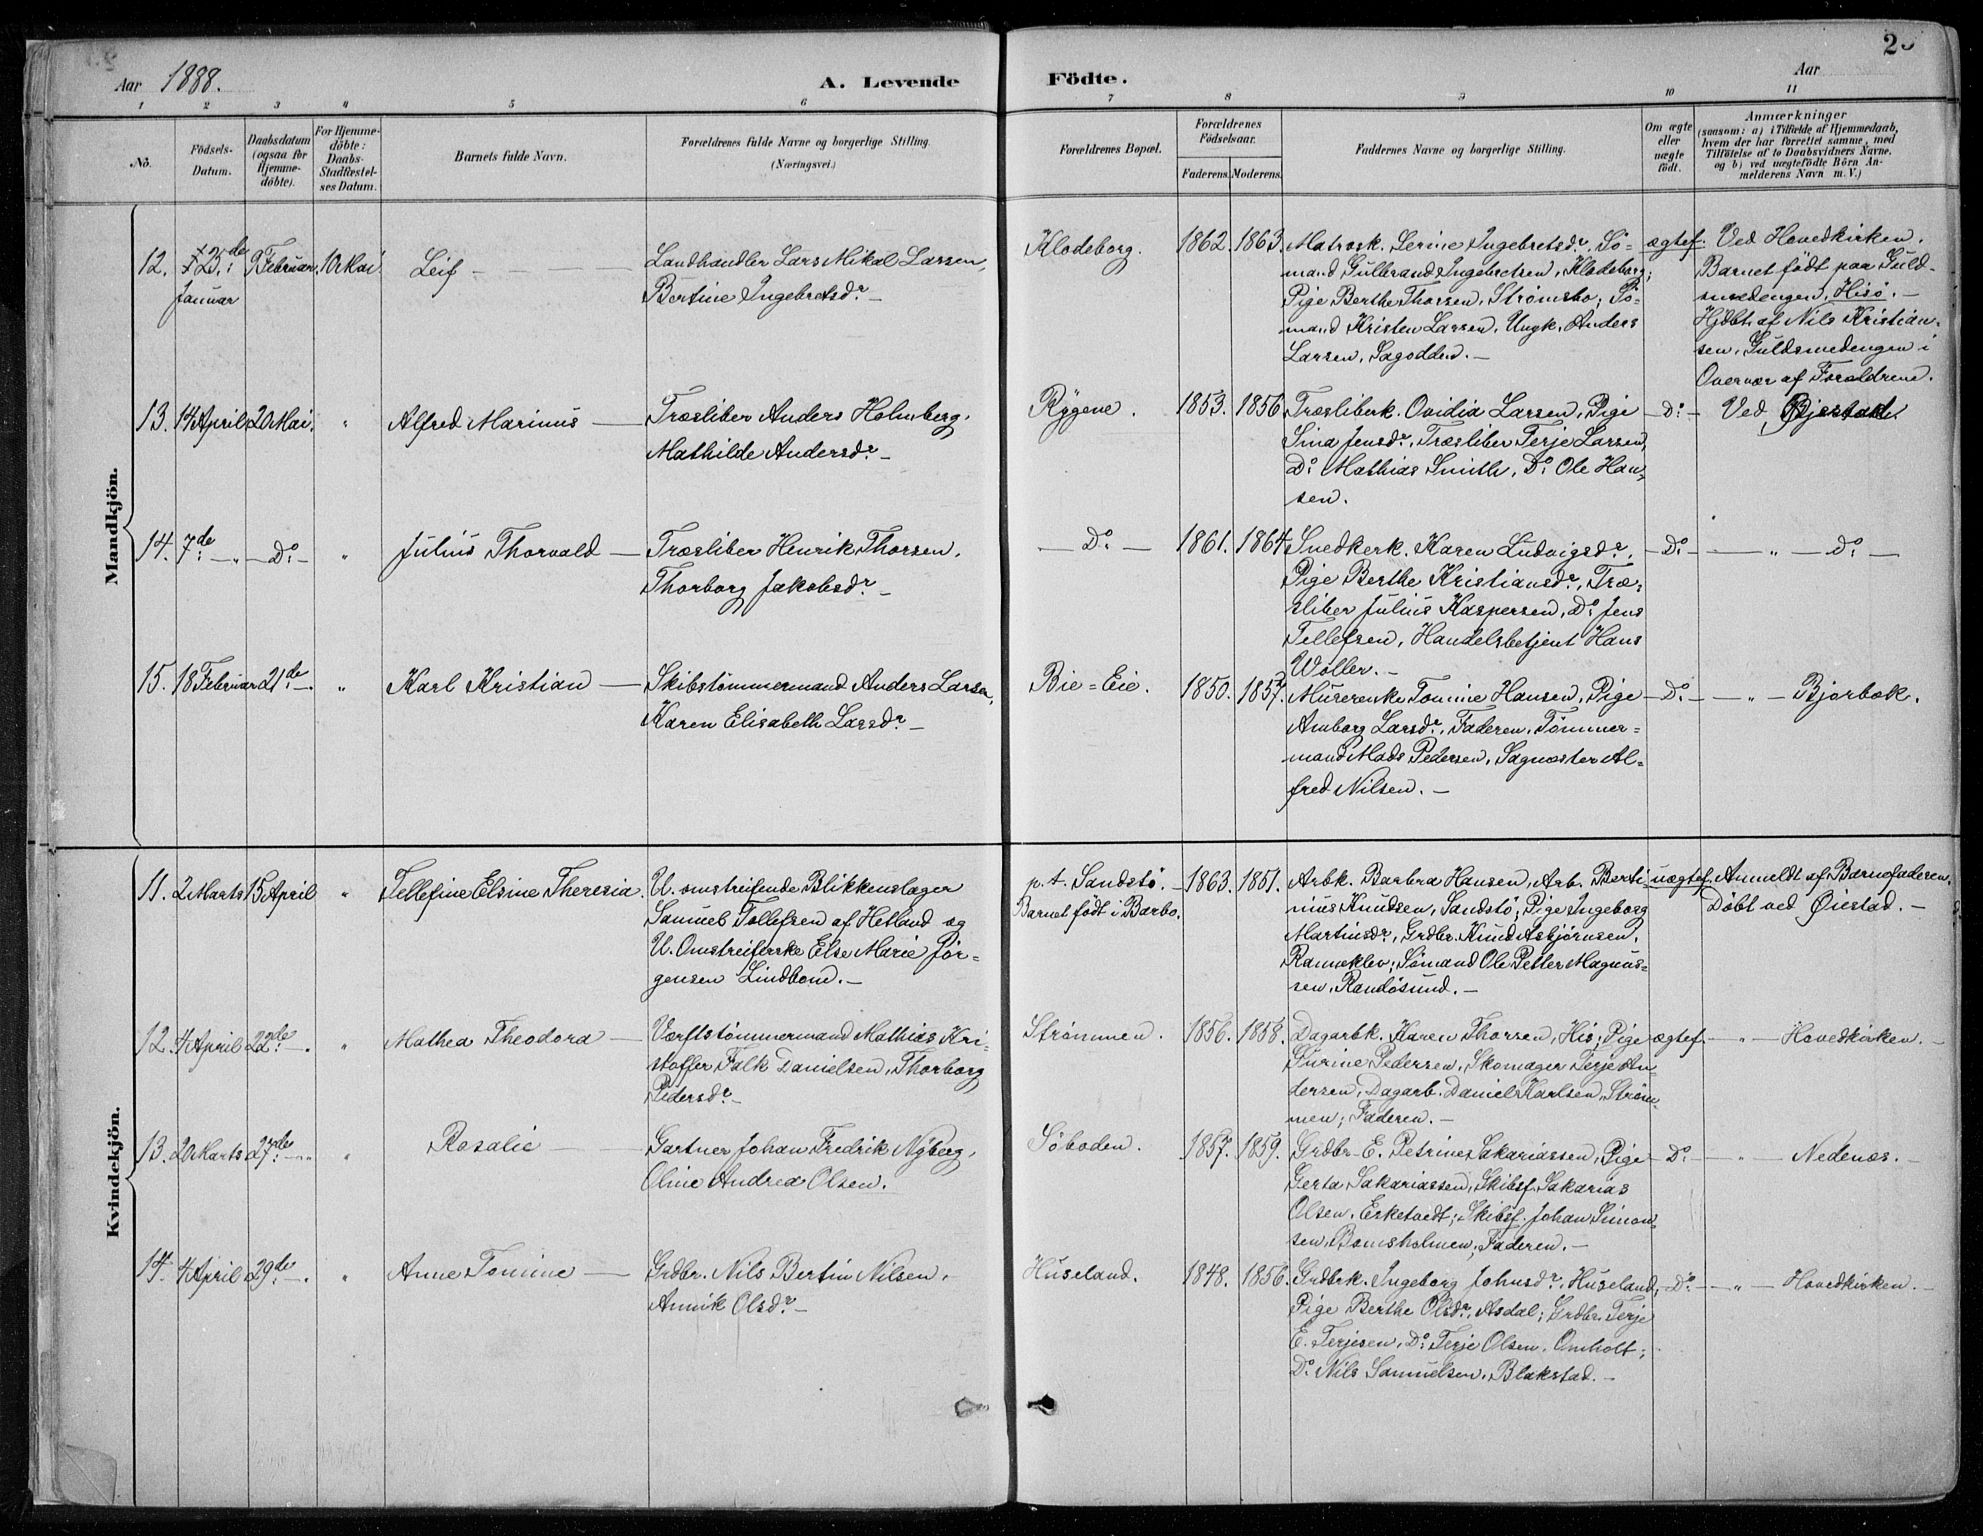 Aar 1888. A. Levende Födte. Aar
1 2 3 4 5 6 7 8 9 10 11
No.
Födsels-Datum.
Daabsdatum (ogsaa for Hjemme-döbte).
For Hjemme-döbte: Daabs-Stadfæstel-ses Datum.
Barnets fulde Navn.
Forældrenes fulde Navne og borgerlige Stilling.
(Næringsvei.)
Forældrenes Bopæl.
Forældrenes Födselsaar.
Faderens. Moderens.
Faddernes Navne og borgerlige Stilling.
Om ægte eller uægte födt.
Anmærkninger
(saasom: a) i Tilfælde af Hjemmedaab,
hvem der har forrettet samme, med
Tilföielse af to Daabsvidners Navne,
og b) ved uægtefödte Börn An-
melderens Navn m. V.)
Mandkjön.
12. 25de Januar 9 Februar. 10 Mai Leif —
Landhandler Lars Mikal Larsen,
Bertine Ingebretsdr. —
Klodeborg. 1862. 1863.
Matrosk. Serine Ingebretsdr. Sö-
mand Gulbrand Ingebretsen, Klodeborg;
Pige Berthe Thorsen, Strømsbo; Sö-
mand Kristen Larsen, Ungk. Anders
Larsen, Sagodden. —
ægtef. Ved Hovedkirken.
Barnet födt paa Guld-
smedengen, Hisö. —
Hjdbt. af Nils Kristian-
sen, Guldsmedengen i
Overvær af Forældrene.
13. 14 April 20 Mai. " Alfred Marinus —
Træsliber Anders Holmberg,
Mathilde Andersdr. —
Rygene. 1853. 1856
Træsliberk. Ovidia Larsen, Pige
Sina Jensdr., Træsliber Terje Larsen,
Do. Mathias Smith, Do. Ole Han-
sen.
— Do. — Ved
14. 7de — " — Do. — " Julius Thorvald —
Træsliber Henrik Thorsen,
Thorborg Jakobsdr. —
— Do. — 1861. 1864.
Snedkerk. Karen Ludvigsdr.,
Pige Berthe Kristiansdr., Træ-
sliber Julius Kaspersen, Do. Jens
Tellefsen, Handelsbetjent Hans
Woller. —
— Do. — — " — Do. —
15. 18 Februar 21de —. " Karl Kristian —
Skibstömmermand Anders Larsen,
Karen Elisabeth Larsdr. —
Bie-Eie. 1850. 1857.
Murerenke Tomine Hansen, Pige
Amborg Larsdr., Faderen, Tömmer-
mand Mads Pedersen, Sagmester Al-
fred Nilsen. —
— Do. — — " — Bjorbæk.
Kvindekjön.
11. 2 Marts 15 April " Tellefine Elsine Theresia.
U. omstreifende Blikkenslager
Samuel Tollefsen af Hetland og
U. Omstreiferske Else Marie Jör-
gensen Lindbom. —
p.t. Sandstö.
Barnet födt i Barbo.
1863. 1851.
Arbk. Barbra Hansen, Arb. Berti-
nius Knudsen, Sandstö; Pige Ingeborg
Martinsdr., Grdbr. Knud Asbjörnsen,
Ranneklev; Sömand Ole Petter Magnus-
sen, Randösund. —
uægtef. Anmeldt af Barnefaderen.
Döbt ved Øiestad. —
12. 4 April 22de —. " Mathea Theodora —
Værftstömmermand Mathias Kri-
stoffer Falk Danielsen, Thorborg
Pedersdr. —
Strömmen. 1856. 1858.
Dagarbk. Karen Thorsen, His; Pige
Gurine Pedersen, Skomager Terje An-
dersen, Dagarb. Daniel Karlsen, Ström-
men; Faderen. —
ægtef. — " — Hovedkirken. —
13. 20 Marts 27de — " Rosalie —
Gartner Johan Fredrik Nyberg,
Oline Andrea Olsen.
Söboden. 1857. 1859.
Grdbr. E. Petrine Sakariassen, Pige
Gerta Sakariassen, Skibsf. Sakarias
Olsen, Esketvedt; Skibsf. Johan Simon-
sen, Bomsholmen, Faderen. —
— Do. — — " — Nedenæs. —
14. 4 April 29de —. " Anne Tomine —
Grdbr. Nils Bertin Nilsen,
Annik Olsdr. —
Huseland. 1848. 1856.
Grdbrk. Ingeborg Johnsdr., Huseland;
Pige Berthe Olsdr., Asdal; Grdbr. Terje
E. Terjesen, Do. Terje Olsen, Omholt;
Do. Nils Samuelsen, Blakstad. —
— Do. — — " — Hovedkirken. —